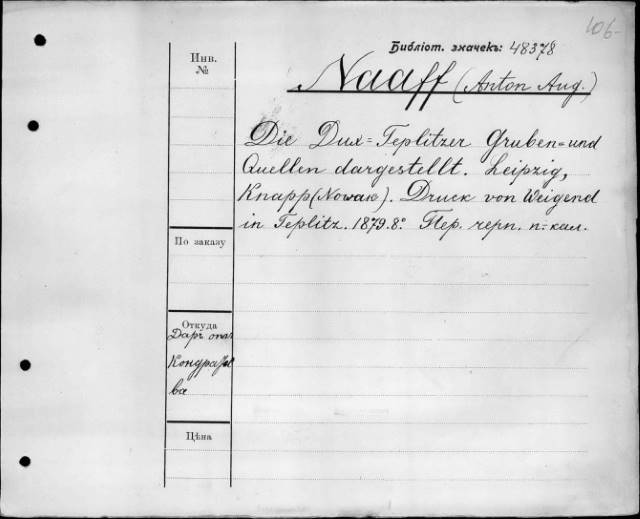 106-
Библіот. значекъ: 48378
Naaff (Anton Aug.)
Инв.
№
Die Dux=Teplitzer Gruben=und
Quellen dargestellt. Leipzig,
Knapp (Nowak). Druck von Weigend
in Teplitz. 1879. 8º. Пер. черн. п-кал.
По заказу
Откуда
Даръ
Цѣна